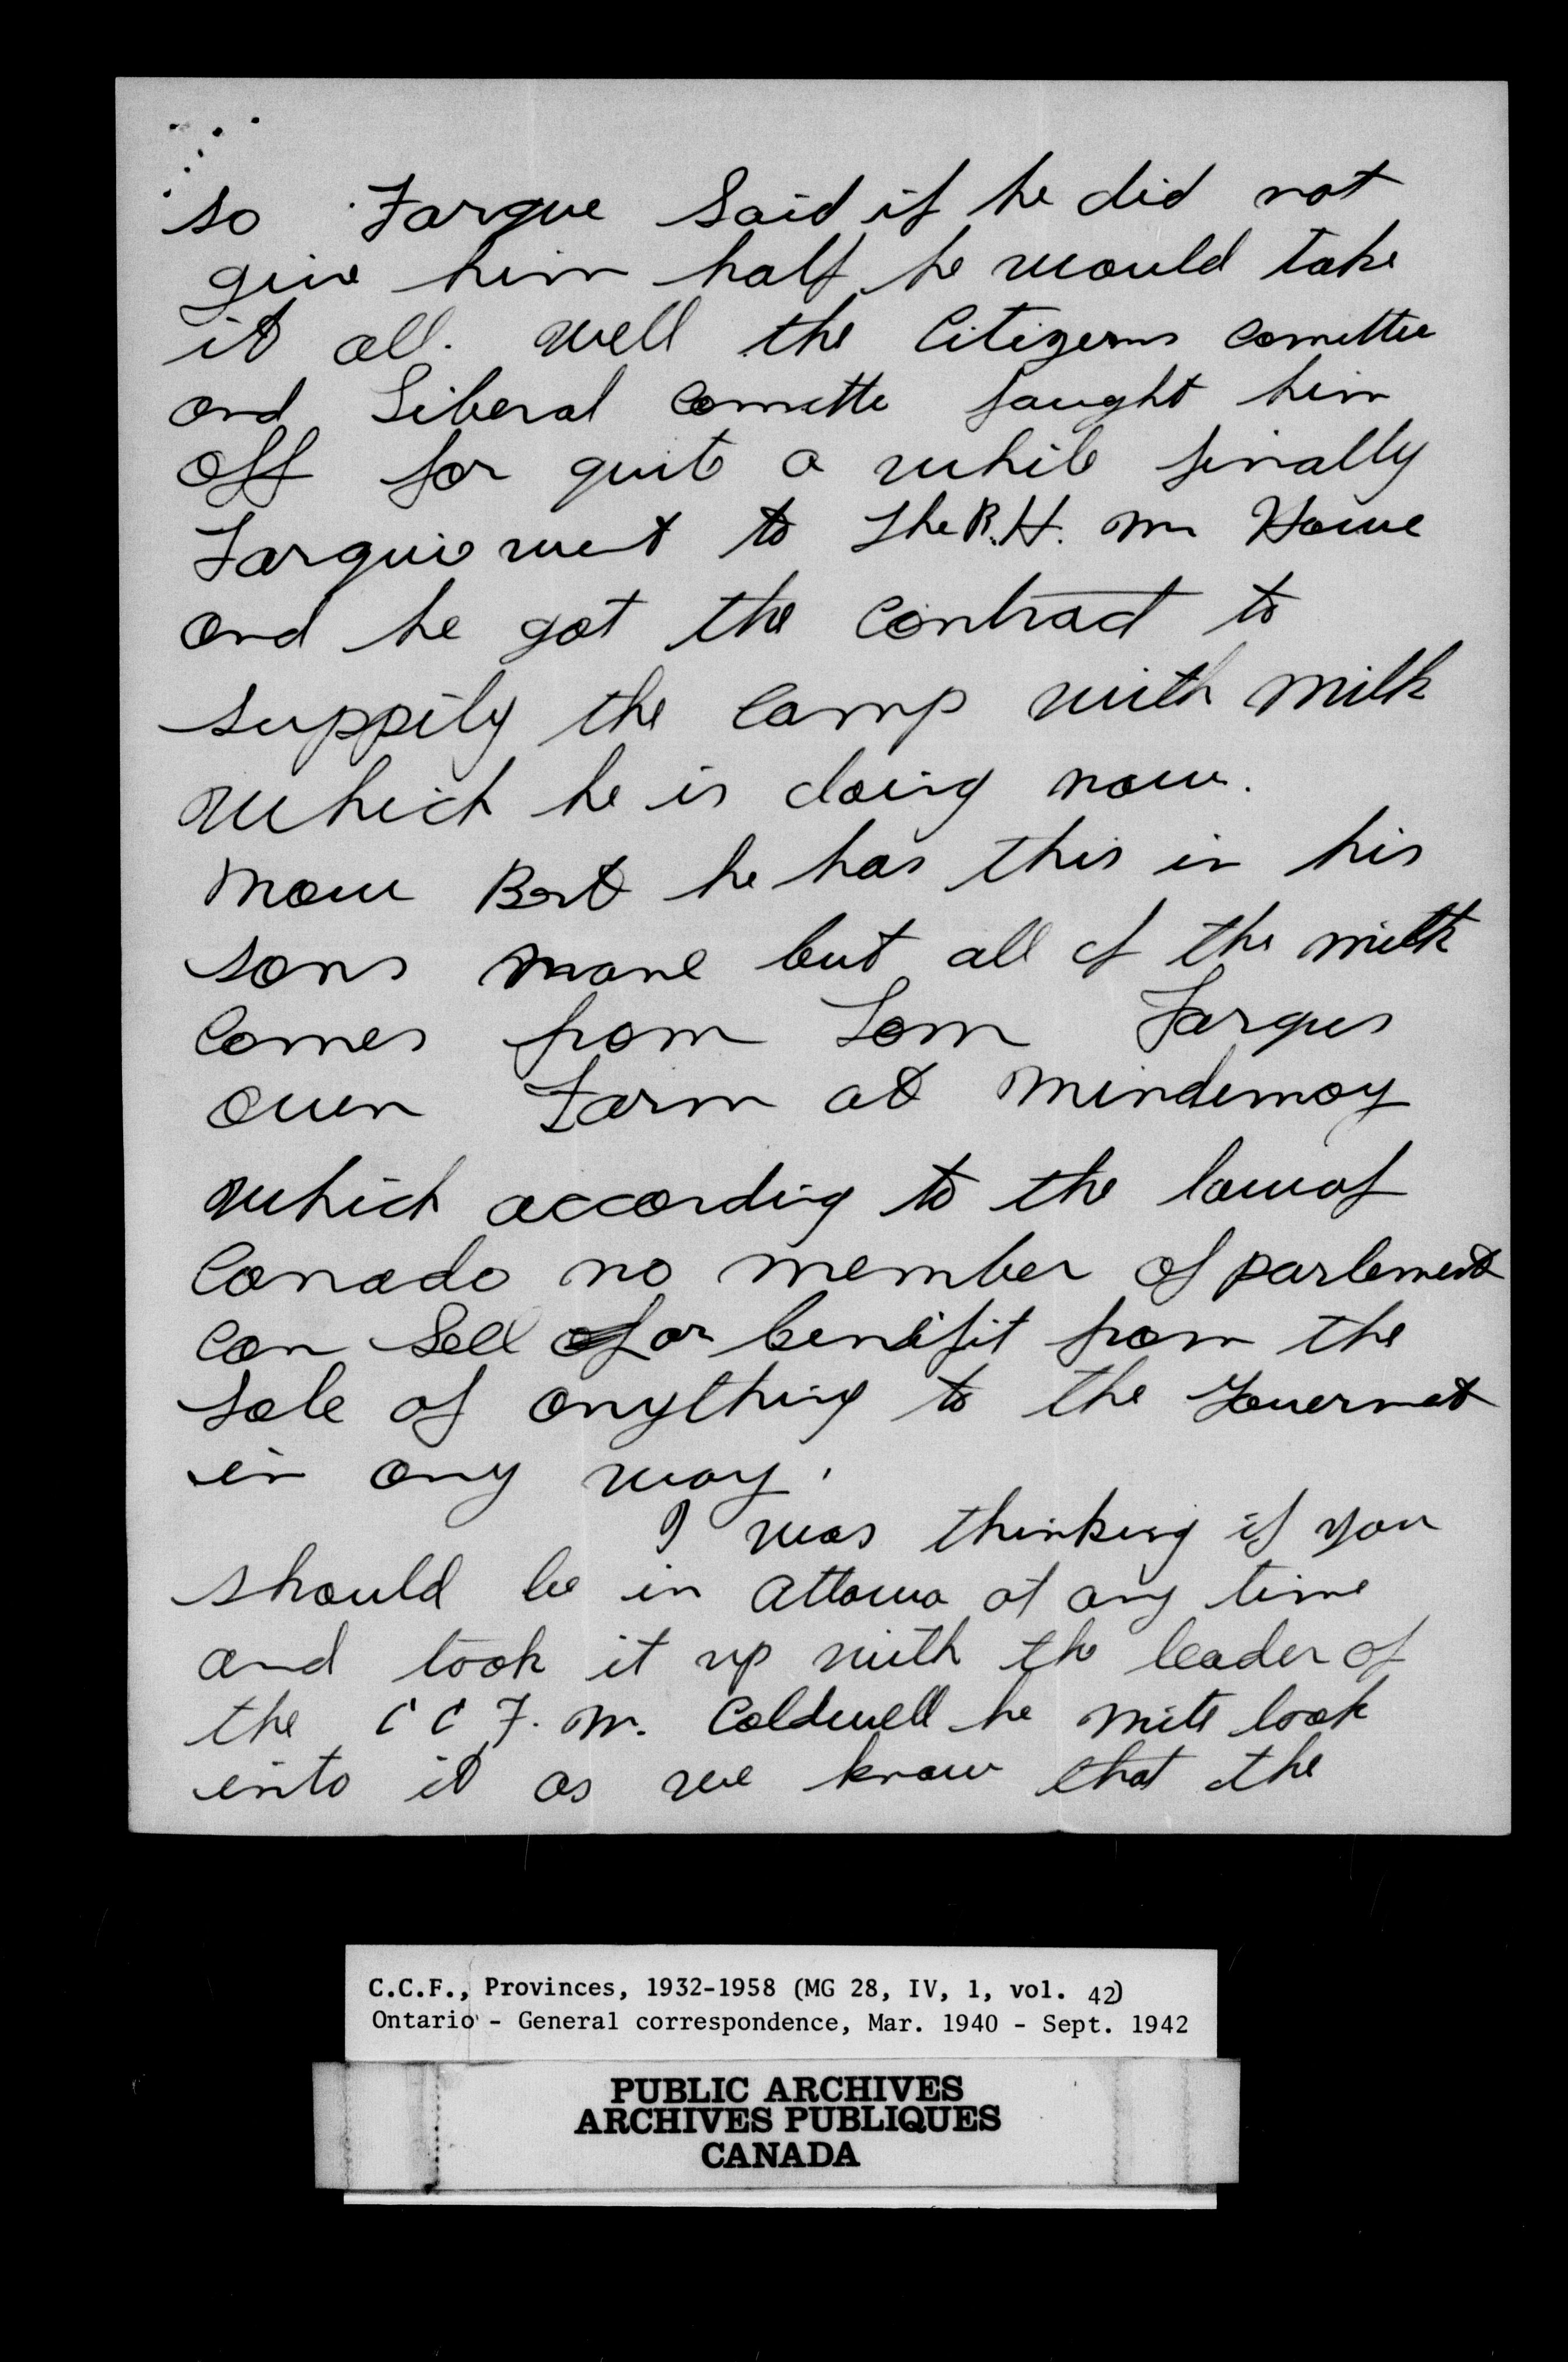 so Farque Said if he did not
give him half he would take
it all. well the Citizens comittee
and Liberal comitte faught him
off for quite a while finally
Farquie went to The R.H. Mr Howe
and he got the contract to
suppily the camp with milk
which he is doing now.
Now Bert he has this in his
sons mane but all of the milk
comes from Tom Farques
owen Farm at Mindemoy
which according to the law of
Canada no member of parlement
can sell or benifit from the
sale of anything to the Goverment
in any way.
I was thinking if you
should be in Ottawa at any time
and took it up with the leader of
the C C F. Mr. Coldwell he mite look
into it as we know that the
C.C.F., Provinces, 1932-1958 (MG 28, IV, 1, vol. 42)
Ontario - General correspondence, Mar. 1940 - Sept. 1942
PUBLIC ARCHIVES
ARCHIVES PUBLIQUES
CANADA